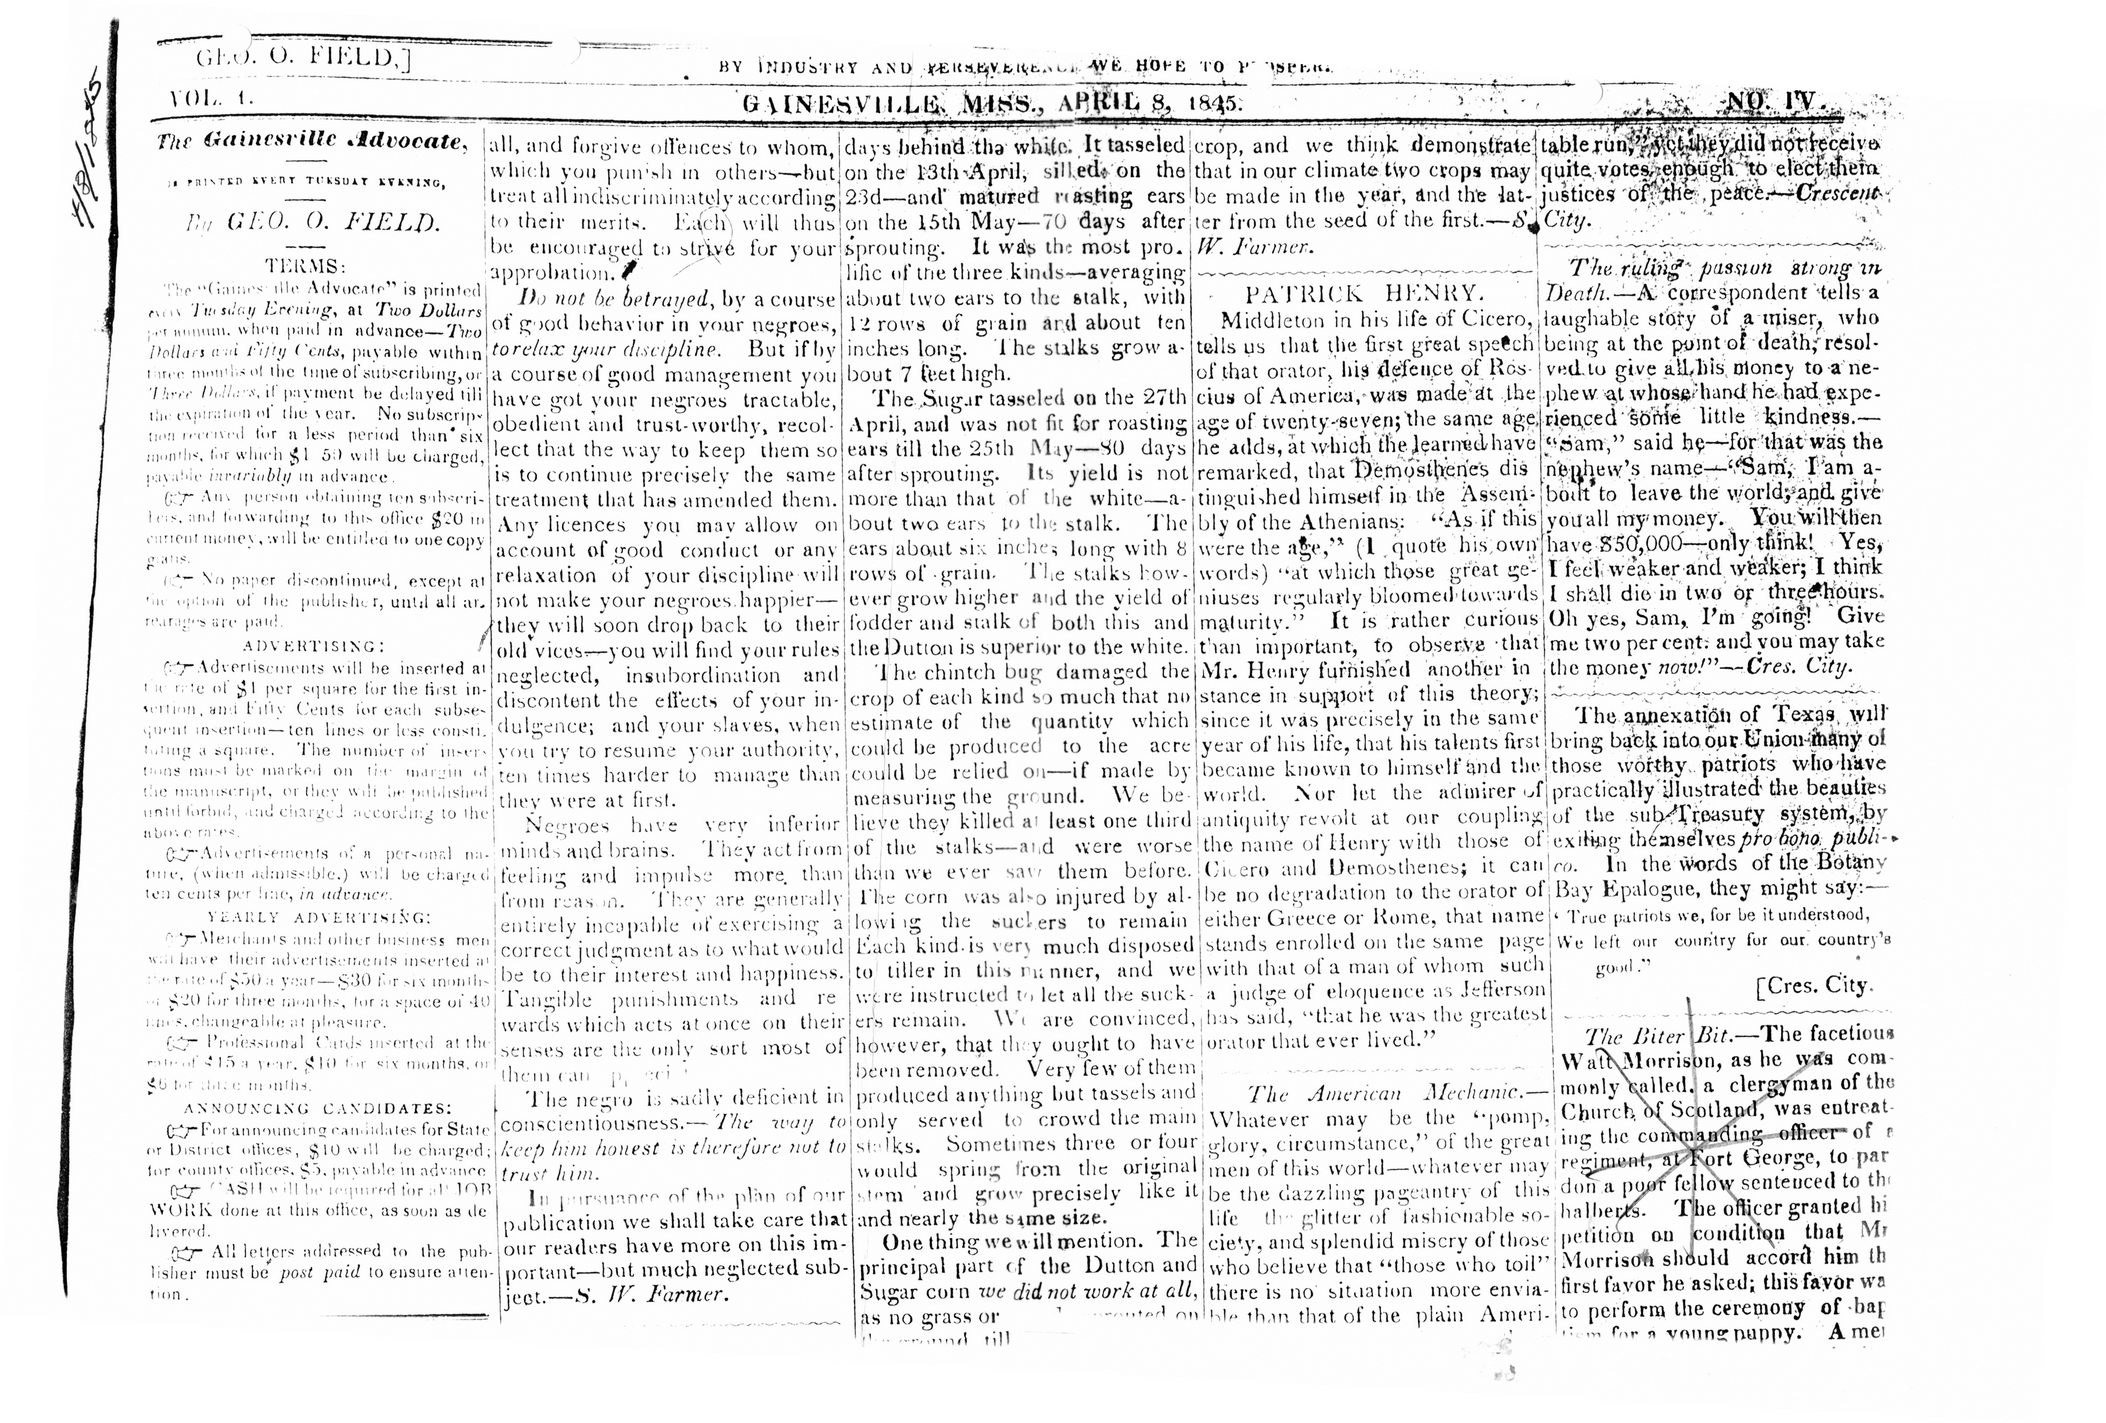 4/8/1845
GEO. O. FIELD,]
BY INDUSTRY AND PERSEVERENCE WE HOPE TO PROSPER.
VOL. 1.
GAINESVILLE, MISS., APRIL 8, 1845.
NO. IV.
The Gainesville Advocate,
IS PRINTED EVERY TUESDAY EVENING,
By GEO. O. FIELD.
TERMS:
The "Gainesville Advocate" is printed
every Tuesday Evening, at Two Dollars
per annum, when paid in advance—Two
Dollars and Fifty Cents, payable within
three months of the time of subscribing, or
Three Dollars, if payment be delayed till
the expiration of the year. No subscrip-
tion received for a less period than six
months, for which $1 50 will be charged,
payable invariably in advance.
☞ Any person obtaining ten subscri-
bers, and forwarding to this office $20 in
current money, will be entitled to one copy
gratis.
☞ No paper discontinued, except at
the option of the publisher, until all ar-
rearages are paid.
ADVERTISING:
☞ Advertisements will be inserted at
the rate of $1 per square for the first in-
sertion, and Fifty Cents for each subse-
quent insertion—ten lines or less consti-
tuting a square. The number of inser-
tions must be marked on the margin of
the manuscript, or they will be published
until forbid, and charged according to the
above rates.
☞ Advertisements of a personal na-
ture, (when admissible,) will be charged
ten cents per line, in advance.
YEARLY ADVERTISING:
☞ Merchants and other business men
will have their advertisements inserted at
the rate of $50 a year—$30 for six months
or $20 for three months, for a space of 40
lines, changeable at pleasure.
☞ Professional Cards inserted at the
rate of $15 a year, $10 for six months, or
$6 for three months.
ANNOUNCING CANDIDATES:
☞ For announcing candidates for State
or District offices, $10 will be charged;
for county offices, $5, payable in advance
☞ CASH will be required for all JOB
WORK done at this office, as soon as de
livered.
☞ All letters addressed to the pub-
lisher must be post paid to ensure atten-
tion.
all, and forgive offences to whom,
which you punish in others—but
treat all indiscriminately according
to their merits. Each will thus
be encouraged to strive for your
approbation.
Do not be betrayed, by a course
of good behavior in your negroes,
to relax your discipline. But if by
a course of good management you
have got your negroes tractable,
obedient and trust-worthy, recol-
lect that the way to keep them so
is to continue precisely the same
treatment that has amended them.
Any licences you may allow on
account of good conduct or any
relaxation of your discipline will
not make your negroes happier—
they will soon drop back to their
old vices—you will find your rules
neglected, insubordination and
discontent the effects of your in-
dulgence; and your slaves, when
you try to resume your authority,
ten times harder to manage than
they were at first.
Negroes have very inferior
minds and brains. They act from
feeling and impulse more than
from reason. They are generally
entirely incapable of exercising a
correct judgment as to what would
be to their interest and happiness.
Tangible punishments and re
wards which acts at once on their
senses are the only sort most of
them can
The negro is sadly deficient in
conscientiousness.—The way to
keep him honest is therefore not to
trust him.
In pursuance of the plan of our
publication we shall take care that
our readers have more on this im-
portant—but much neglected sub-
ject.—S. W. Farmer.
days behind the white. It tasseled
on the 13th April, silked on the
23d—and matured roasting ears
on the 15th May—70 days after
sprouting. It was the most pro.
lific of the three kinds—averaging
about two ears to the stalk, with
12 rows of grain and about ten
inches long. The stalks grow a-
bout 7 feet high.
The Sugar tasseled on the 27th
April, and was not fit for roasting
ears till the 25th May—80 days
after sprouting. Its yield is not
more than that of the white—a-
bout two ears to the stalk. The
ears about six inches long with 8
rows of grain. The stalks how-
ever grow higher and the yield of
fodder and stalk of both this and
the Dutton is superior to the white.
The chintch bug damaged the
crop of each kind so much that no
estimate of the quantity which
could be produced to the acre
could be relied on—if made by
measuring the ground. We be-
lieve they killed at least one third
of the stalks—and were worse
than we ever saw them before.
The corn was also injured by al-
lowing the suckers to remain
Each kind is very much disposed
to tiller in this manner, and we
were instructed to let all the suck-
ers remain. We are convinced,
however, that they ought to have
been removed. Very few of them
produced anything but tassels and
only served to crowd the main
stalks. Sometimes three or four
would spring from the original
stem and grow precisely like it
and nearly the same size.
One thing we will mention. The
principal part of the Dutton and
Sugar corn we did not work at all,
as no grass or sprouted on
the ground till
crop, and we think demonstrate
that in our climate two crops may
be made in the year, and the lat-
ter from the seed of the first.—S.
W. Farmer.
PATRICK HENRY.
Middleton in his life of Cicero,
tells us that the first great speech
of that orator, his defence of Ros-
cius of America, was made at the
age of twenty-seven; the same age
he adds, at which the learned have
remarked, that Demosthenes dis
tinguished himself in the Assem-
bly of the Athenians: "As if this
were the age," (I quote his own
words) "at which those great ge-
niuses regularly bloomed towards
maturity." It is rather curious
than important, to observe that
Mr. Henry furnished another in
stance in support of this theory;
since it was precisely in the same
year of his life, that his talents first
became known to himself and the
world. Nor let the admirer of
antiquity revolt at our coupling
the name of Henry with those of
Cicero and Demosthenes; it can
be no degradation to the orator of
either Greece or Rome, that name
stands enrolled on the same page
with that of a man of whom such
a judge of eloquence as Jefferson
has said, "that he was the greatest
orator that ever lived."
The American Mechanic.—
Whatever may be the "pomp,
glory, circumstance," of the great
men of this world—whatever may
be the dazzling pageantry of this
life the glitter of fashionable so-
ciety, and splendid misery of those
who believe that "those who toil"
there is no situation more envia-
ble than that of the plain Ameri-
table run," yet they did not receive
quite votes enough to elect them
justices of the peace.—Crescent
City.
The ruling passion strong in
Death.—A correspondent tells a
laughable story of a miser, who
being at the point of death, resol-
ved to give all his money to a ne-
phew at whose hand he had expe-
rienced some little kindness.—
"Sam," said he—for that was the
nephew's name—"Sam, I am a-
bout to leave the world, and give
you all my money. You will then
have $50,000—only think! Yes,
I feel weaker and weaker; I think
I shall die in two or three hours.
Oh yes, Sam, I'm going! Give
me two per cent. and you may take
the money now!"—Cres. City.
The annexation of Texas will
bring back into our Union many of
those worthy patriots who have
practically illustrated the beauties
of the sub-Treasury system, by
exiling themselves pro bono publi-
co. In the words of the Botany
Bay Epalogue, they might say:—
' True patriots we, for be it understood,
We left our country for our country's
good."
[Cres. City.
The Biter Bit.—The facetious
Watt Morrison, as he was com-
monly called, a clergyman of the
Church of Scotland, was entreat-
ing the commanding officer of a
regiment, at Fort George, to par
don a poor fellow sentenced to the
halberts. The officer granted hi
petition on condition that Mr
Morrison should accord him th
first favor he asked; this favor wa
to perform the ceremony of bap
tism for a young puppy. A mer